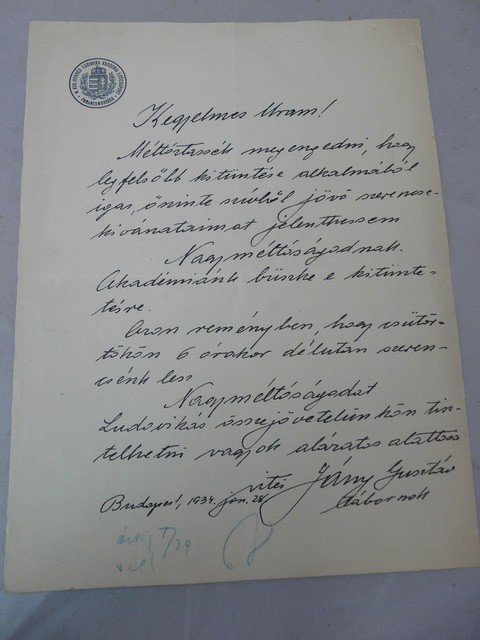 Kegyelmes Uram!
Méltóztassék megengedni, hogy
legfelsőbb kitüntetése alkalmából
igaz, őszinte szívből jövő szerencse-
kívánataimat jelenthessem
Nagyméltóságodnak.
Akadémiánk büszke e kitünte-
tésre.
Azon reményben, hogy csütör-
tökön 6 órakor délután szeren-
csénk lesz
Nagyméltóságodat
Ludovikás összejövetelünkön tisz-
telhetni vagyok alázatos alattasa
vitéz Jány Gusztáv
Budapest, 1934. jan. 28.
tábornok